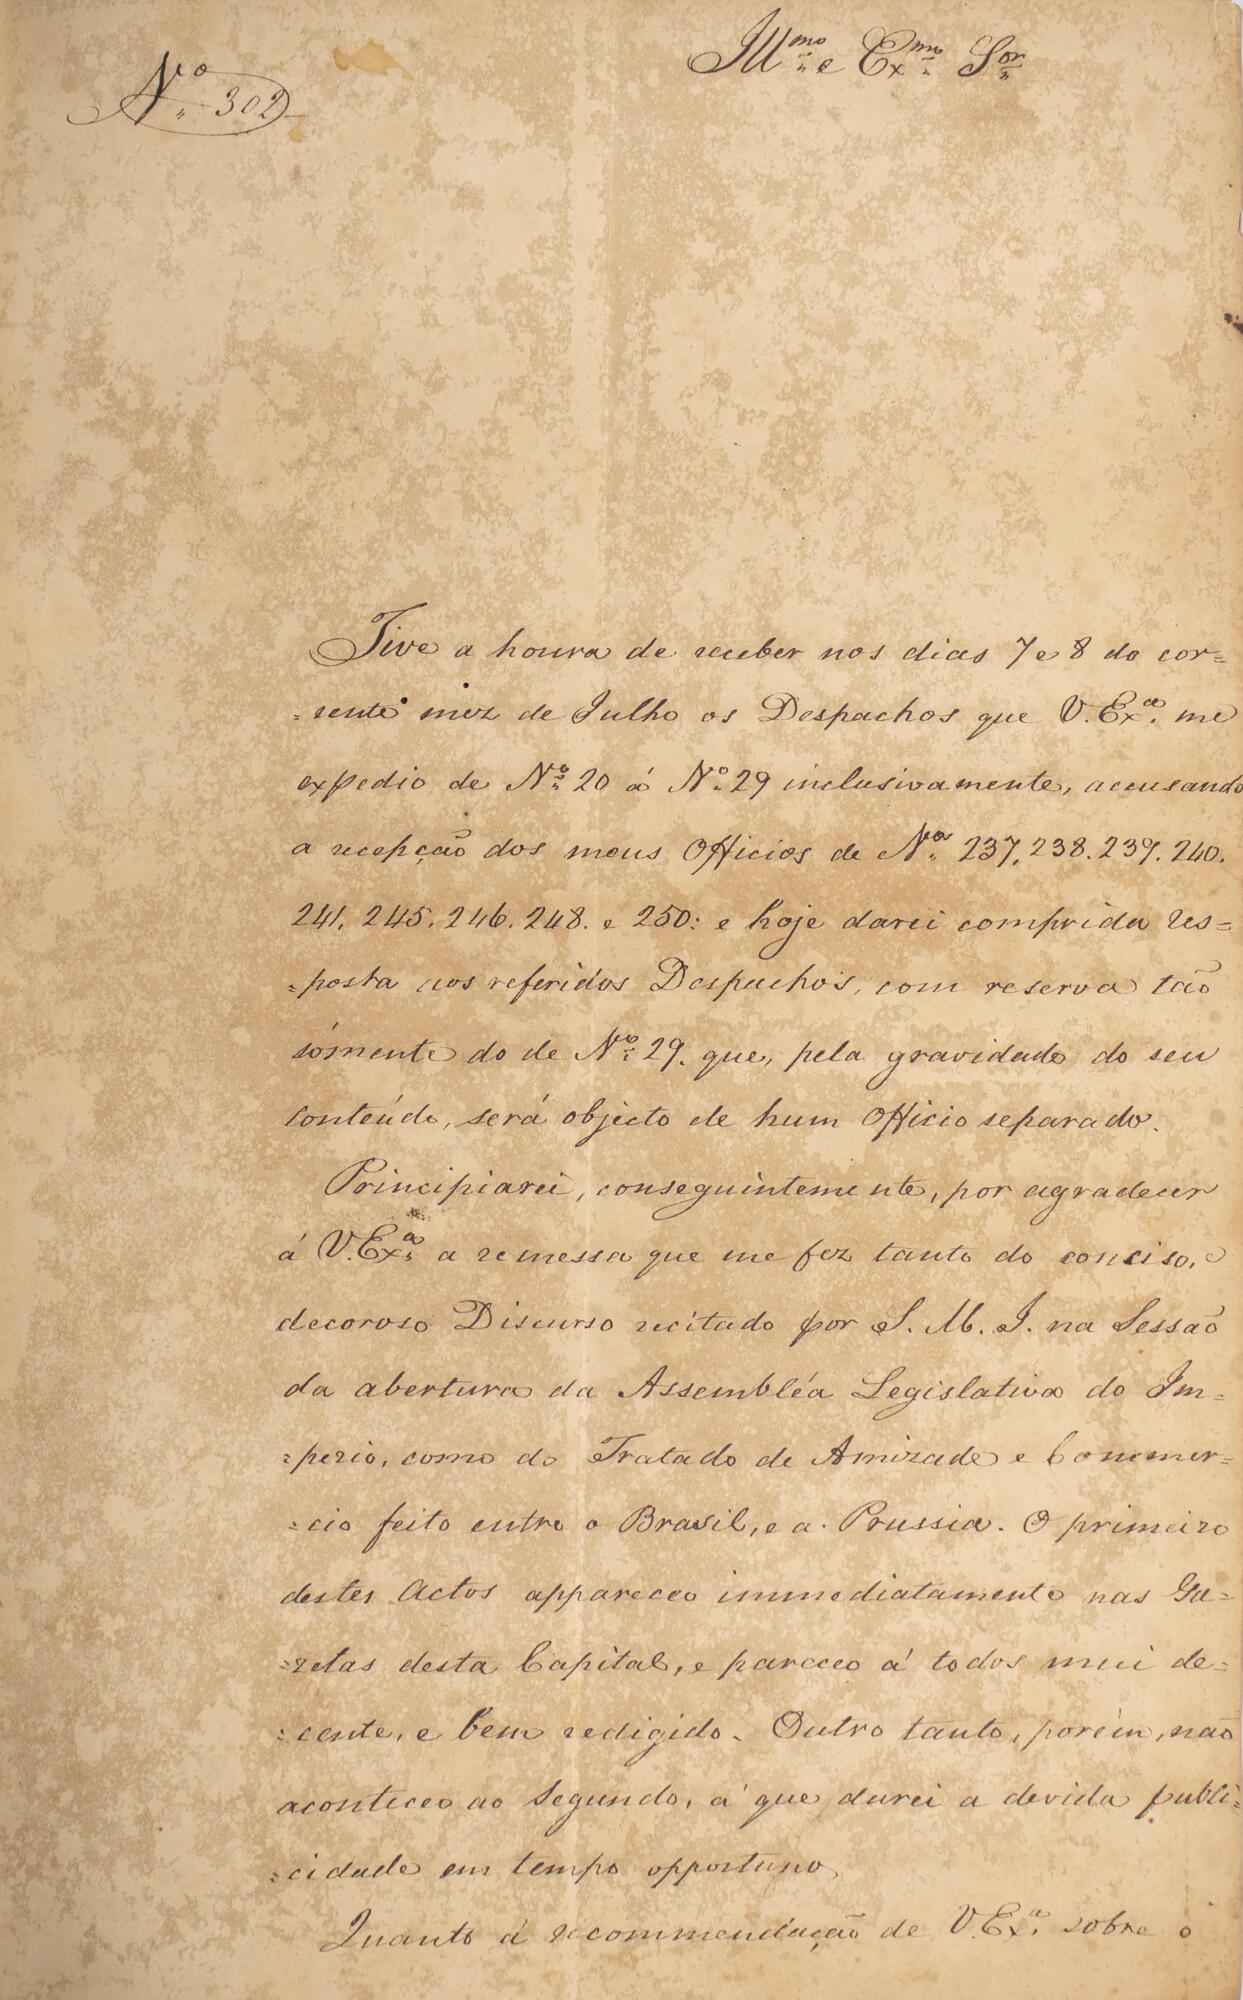 Illmo. e Exmo. Sor.
No. 302
Tive a honra de receber nos dias 7 e 8 do cor=
=rente mez de Julho os Despachos que V. Exa. me
expedio de No. 20 á No. 29 inclusivamente, accusando
a recepção dos meus Officios de Nos. 237. 238. 239. 240.
241. 245. 246. 248. e 250: e hoje darei comprida res=
=posta aos referidos Despachos, com reserva tão
sómente do de No. 29. que, pela gravidade do seu
conteúdo, será objecto de hum Officio separado.
Principiarei, conseguintemente, por agradecer
á V. Exa. a remessa que me fez tanto do conciso, e
decoroso Discurso recitado por S. M. I. na Sessão
da abertura da Assembléa Legislativa do Im=
=perio, como do Tratado de Amizade e Commer=
=cio feito entre o Brasil, e a Prussia. O primeiro
destes Actos appareceo immediatamente nas Ga=
=zetas desta Capital, e pareceo á todos mui de=
=cente, e bem redigido. Outro tanto, porém, não
aconteceo ao segundo, á que darei a devida publi=
=cidade em tempo opportuno.
Quanto á recommendação de V. Exa. sobre o